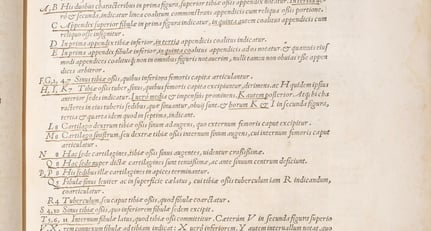 A, B His duobus characteribus in prima figura, superior tibiæ ossis appendix indicatur.
ró & secunda, indicatur linea coalitum commonstrans appendicis cum reliqua ossis portione.
C Appendix superior fibulæ in prima figura indicatur, in quinta autem coalitus appendicis cum
reliquo osse insignitur.
D In prima appendix tibiæ inferior, in tertia appendicis coalitus indicatur.
E In prima appendix fibulæ inferior, in quinta coalitus appendicis ad os notatur. & quamuis eius
modi appendicis coalitus non in omnibus figuris notauerim, nulli tamen non obuius esse appen
dicis arbitror.
F, G 2, 4, 7 Sinus tibiæ ossis, quibus inferiora femoris capita articulantur.
H, I, K 7 Tibiæ ossis tuber, sinus, quibus femoris capita excipiuntur, dirimens, ac H quidem ipsius
anterior sedes indicatur. I uero media & impensius prominens. K autem posterior. Atque hi cha
racteres in eius tuberis sedibus, quæ sinuatur, obuij sunt, & horum K & I in secunda figura,
tertia & quarta idem quod in septima, indicant.
L 8 Cartilago dextrum tibiæ ossis sinum adaugens, quo externum femoris caput excipitur.
M 8 Cartilago sinistrum, seu dextræ tibiæ ossis internum sinum augens, cui internum femoris caput
articulatur.
N 8 Hac sede cartilagines, tibiæ ossis sinus augentes, uidentur crassissimæ.
O 8 Hac sede nuper dictæ cartilagines sunt tenuissimæ, ac ante sinuum centrum deficiunt.
P, P 8 His sedibus illæ cartilagines in apices terminantur.
Q 5 Fibulæ sinus leuiter ac in superficie cauatus, cui tibiæ ossis tuberculum iam R indicandum,
coarticulatur.
R 4 Tuberculum, seu caput tibiæ ossis, quod fibulæ coarctatur.
S 4, 10 Sinus tibiæ ossis, quo inferiorem fibulæ sedem excipit.
T 5, 6, 11 Internum fibulæ latus, quod tibiæ ossi committitur. Cæterùm V in secunda figura superio